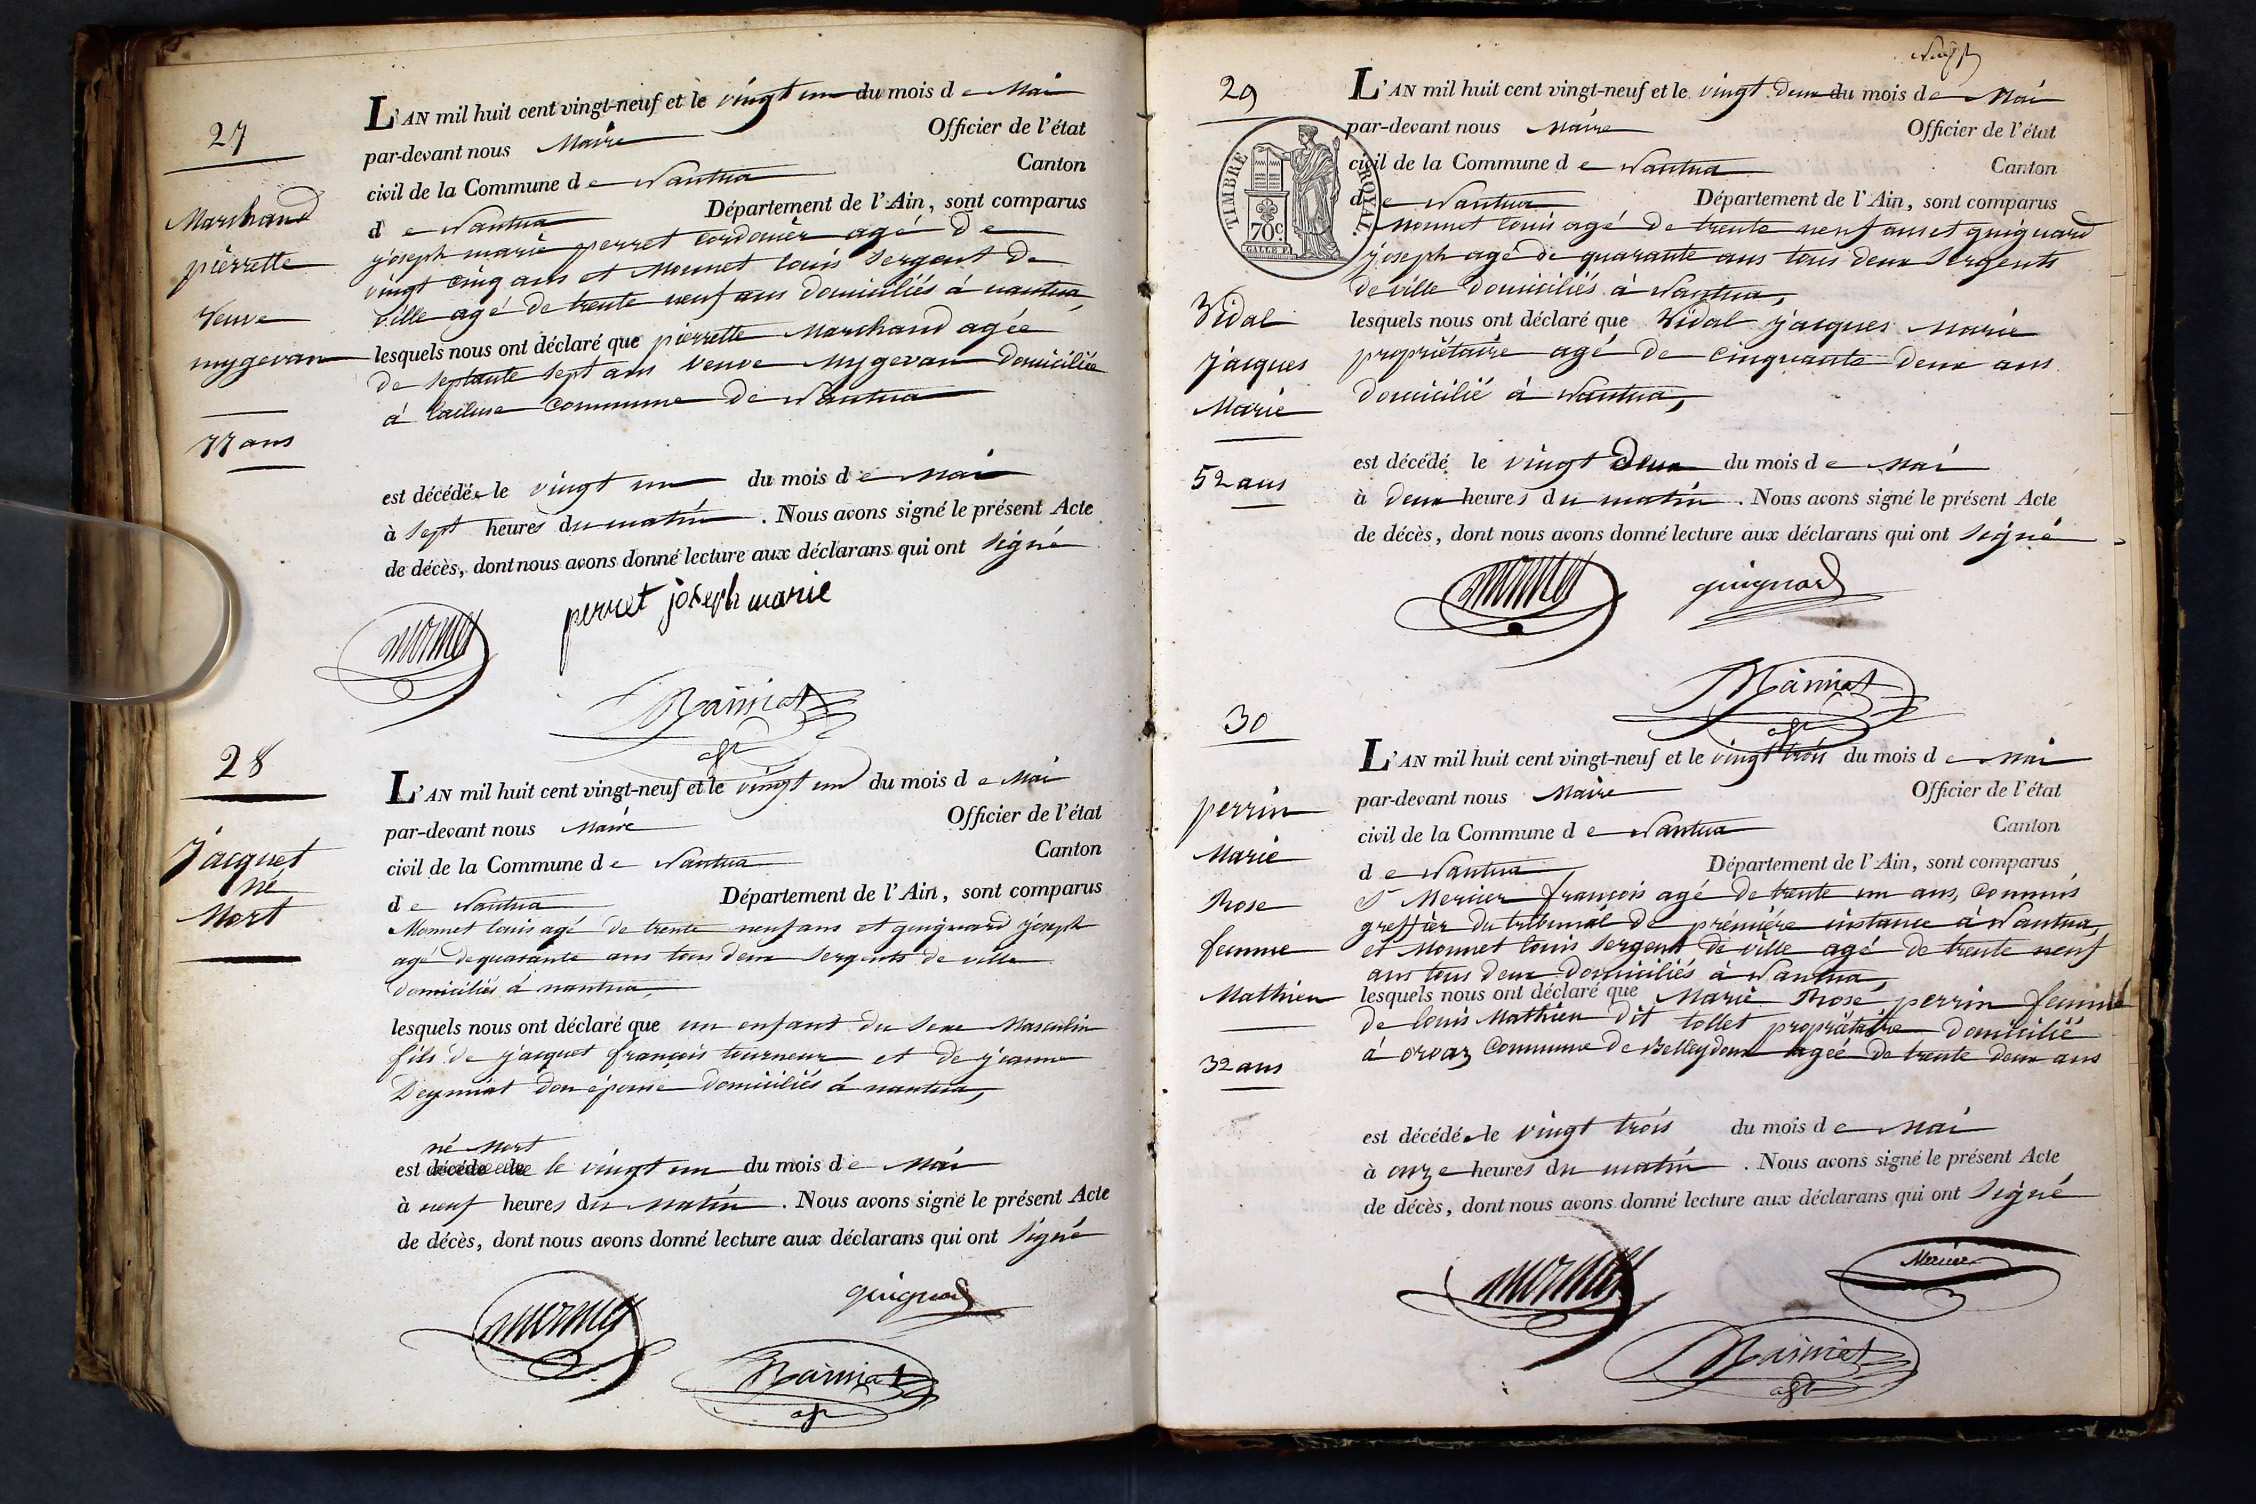 27
Marchand
pièrrette
Veuve
mygevan
77 ans
L'AN mil huit cent vingt-neuf et le vingt un du mois de Mai
par-devant nous Maire Officier de l'état
civil de la Commune de Nantua Canton
de Nantua Département de l'Ain, sont comparus
joseph marie perret cordonier agé de
vingt cinq ans et Monnet louis Sergent de
ville agé de trente neuf ans domiciliés à nantua,
lesquels nous ont déclaré que pièrrette Marchand agée
de septante sept ans veuve Mygevan domiciliée
à commune de Nantua
est décédée le vingt un du mois de Mai
à sept heures du matin. Nous avons signé le présent Acte
de décès, dont nous avons donné lecture aux déclarans qui ont signé
perret joseph marie
28
Jacquet
né
Mort
L'AN mil huit cent vingt-neuf et le vingt un du mois de Mai
par-devant nous Maire Officier de l'état
civil de la Commune de Nantua Canton
de Nantua Département de l'Ain, sont comparus
Monnet louis agé de trente neuf ans et guignard joseph
agé de quarante ans tous deux Sergents de ville
domiciliés à nantua,
lesquels nous ont déclaré que un enfant du sexe Masculin
fils de jacquet françois tourneur et de jeanne
son épouse domiciliés à nantua,
né Mort
est décédé le le vingt un du mois de Mai
à neuf heures du matin. Nous avons signé le présent Acte
de décès, dont nous avons donné lecture aux déclarans qui ont signé
guignard
29
TIMBRE ROYAL.
70c
Vidal
jacques
Marie
52 ans
L'AN mil huit cent vingt-neuf et le vingt deux du mois de Mai
par-devant nous Maire Officier de l'état
civil de la Commune de Nantua Canton
de Nantua Département de l'Ain, sont comparus
Monnet louis agé de trente neuf ans et guignard
joseph agé de quarante ans tous deux Sergents
de ville domiciliés à Nantua,
lesquels nous ont déclaré que Vidal jacques Marie
propriétaire agé de cinquante deux ans
domicilié à Nantua,
est décédé le vingt Deux du mois de Mai
à deux heures du matin. Nous avons signé le présent Acte
de décès, dont nous avons donné lecture aux déclarans qui ont signé
guignard
30
perrin
Marie
Rose
femme
Mathieu
32 ans
L'AN mil huit cent vingt-neuf et le vingt trois du mois de Mai
par-devant nous Maire Officier de l'état
civil de la Commune de Nantua Canton
de Nantua Département de l'Ain, sont comparus
Sr Mercier françois agé de trente un ans, commis
greffièr du tribunal de première instance à Nantua,
et Monnet louis Sergent de ville agé de trente neuf
ans tous deux domiciliés à Nantua,
lesquels nous ont déclaré que Marie Rose perrin femme
de louis Mathieu dit tollet propriètaire domicilié
à orvaz Commune de Belleydoux agée de trente deux ans
est décédée le vingt trois du mois de Mai
à onze heures du matin. Nous avons signé le présent Acte
de décès, dont nous avons donné lecture aux déclarans qui ont signé
Mercier